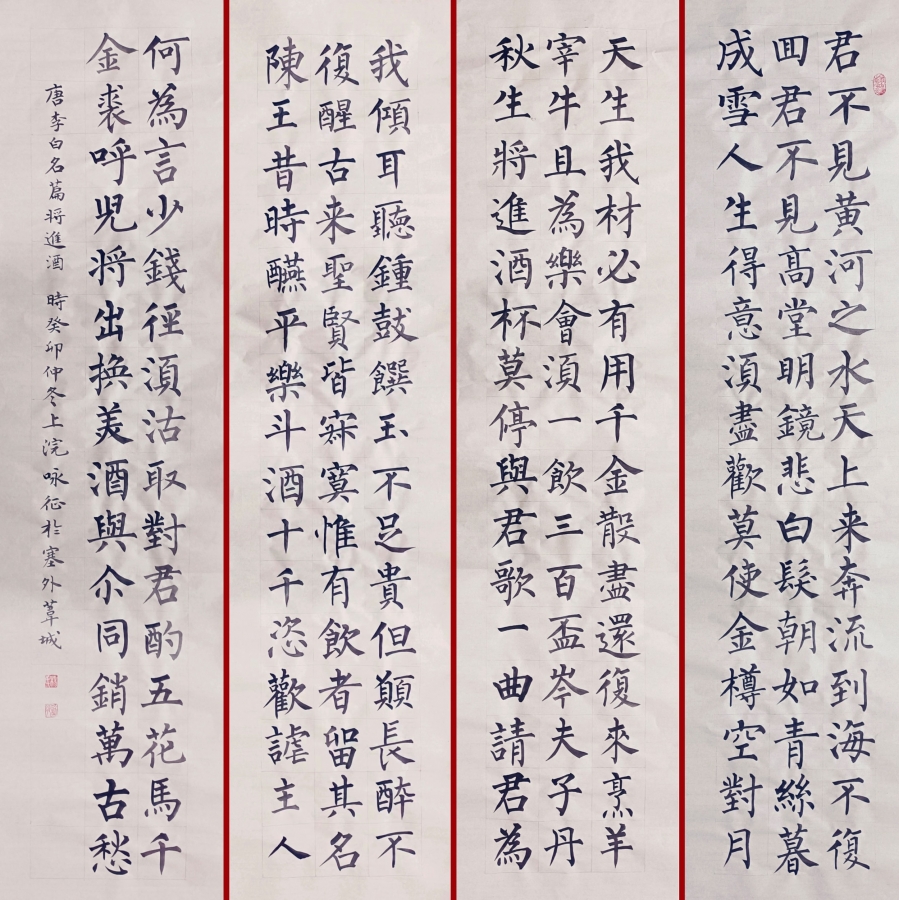 君不見黄河之水天上来奔流到海不復
囬君不見髙堂明鏡悲白髮朝如青絲暮
成雪人生得意湏盡歡莫使金樽空對月
天生我材必有用千金散盡還復來烹羊
宰牛且為樂會湏一飲三百盃岑夫子丹
秋生將進酒杯莫停與君歌一曲請君為
我傾耳聽鍾鼓饌玉不足貴但願長醉不
復醒古来聖賢皆寂寞惟有飲者留其名
陳王昔時醼平樂斗酒十千恣歡謔主人
何為言少錢徑湏沽取對君酌五花馬千
金裘呼児将出換美酒與尒同銷萬古愁
唐李白名篇將進酒 時癸卯仲冬上浣咏征於塞外城